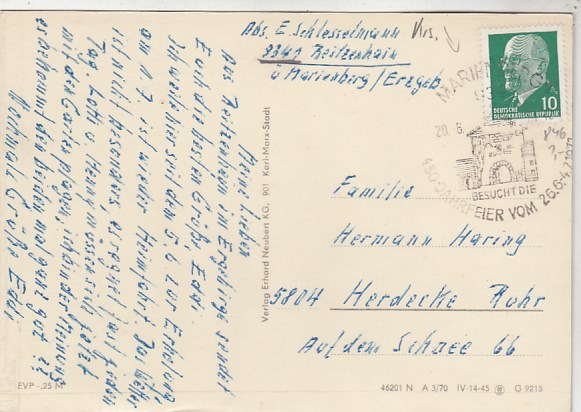 Abs. E. Schlesselmann
9341 Reitzenhain
ü Marienberg/Erzgeb
Meine Lieben
Aus Reitzenhain im Erzgebirge sendet
Euch die besten Grüße Edi.
Ich weile hier seit dem 5.6 zur Erholung
am 1.7. ist wieder Heimfahrt. Das Wetter
ist nicht besonders, es regnet fast jeden
Tag. Lotti u Henry müssen sich jetzt
mit den Garten plagen, ich bin der Meinung
es bekommt den beiden mal ganz gut
Nochmals Grüße Edi
Familie
Hermann Haring
5804 Herdecke Ruhr
Auf dem Schnee 66
DEUTSCHE
DEMOKRATISCHE REPUBLIK
10
MARIEN
20.6.
BESUCHT DIE
450-JAHRFEIER VOM 26.6.-4.7.1971
Verlag Erhard Neubert KG, 901 Karl-Marx-Stadt
EVP -,25 M
46201 N A 3/70 IV-14-45 G 9215